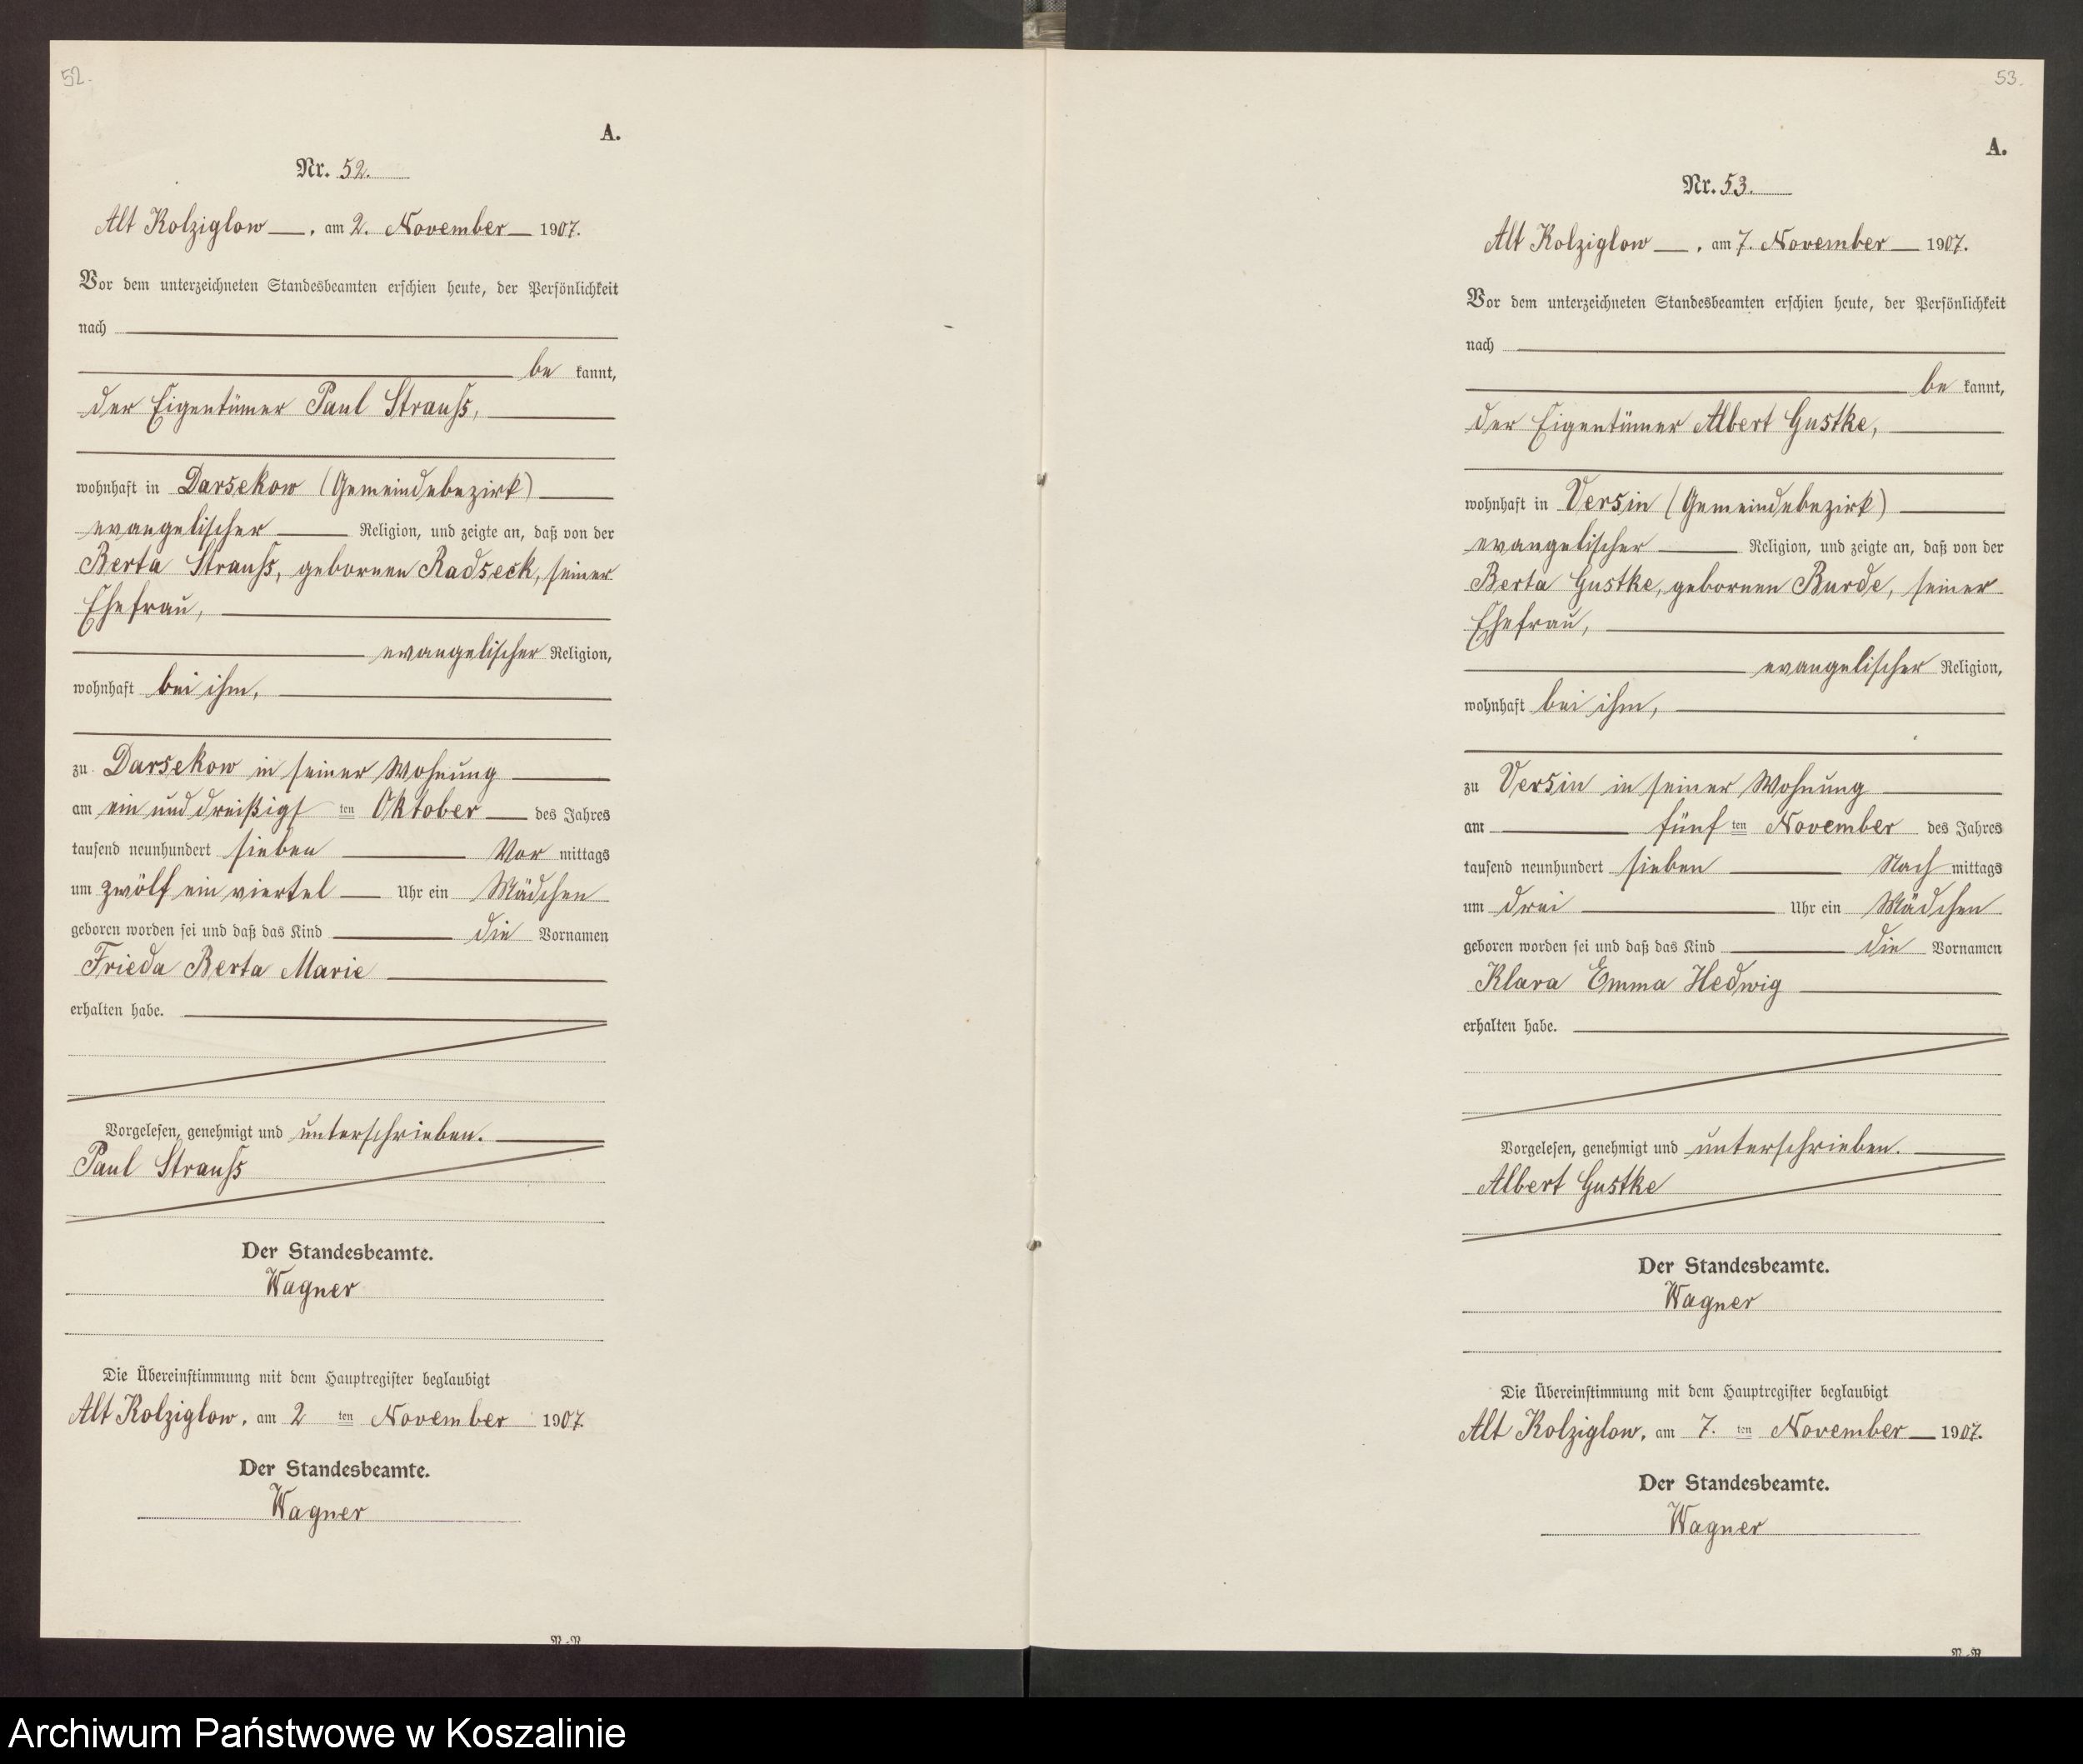 52.
A.
Nr. 52.
Alt Kolziglow, am 2. November 1907.
Vor dem unterzeichneten Standesbeamten erschien heute, der Persönlichkeit
nach
be kannt,
der Eigentümer Paul Strauß,
wohnhaft in Darsekow (Gemeindebezirk)
evangelischer Religion, und zeigte an, daß von der
Berta Strauß, gebornen Radseck, seiner
Ehefrau,
evangelischer Religion,
wohnhaft bei ihm,
zu Darsekow in seiner Wohnung
am ein und dreißigs ten Oktober des Jahres
tausend neunhundert sieben Vor mittags
um zwölf ein viertel Uhr ein Mädchen
geboren worden sei und daß das Kind die Vornamen
Frieda Berta Marie
erhalten habe.
Vorgelesen, genehmigt und unterschrieben.
Paul Strauß
Der Standesbeamte.
Wagner
Die Übereinstimmung mit dem Hauptregister beglaubigt
Alt Kolziglow, am 2 ten November 1907.
Der Standesbeamte.
Wagner
53.
A.
Nr. 53.
Alt Kolziglow, am 7. November 1907.
Vor dem unterzeichneten Standesbeamten erschien heute, der Persönlichkeit
nach
be kannt,
der Eigentümer Albert Gustke,
wohnhaft in Versin (Gemeindebezirk)
evangelischer Religion, und zeigte an, daß von der
Berta Gustke, gebornen Burde, seiner
Ehefrau,
evangelischer Religion,
wohnhaft bei ihm,
zu Versin in seiner Wohnung
am fünf ten November des Jahres
tausend neunhundert sieben Nach mittags
um drei Uhr ein Mädchen
geboren worden sei und daß das Kind die Vornamen
Klara Emma Hedwig
erhalten habe.
Vorgelesen, genehmigt und unterschrieben.
Albert Gustke
Der Standesbeamte.
Wagner
Die Übereinstimmung mit dem Hauptregister beglaubigt
Alt Kolziglow, am 7. ten November 1907.
Der Standesbeamte.
Wagner
Archiwum Państwowe w Koszalinie